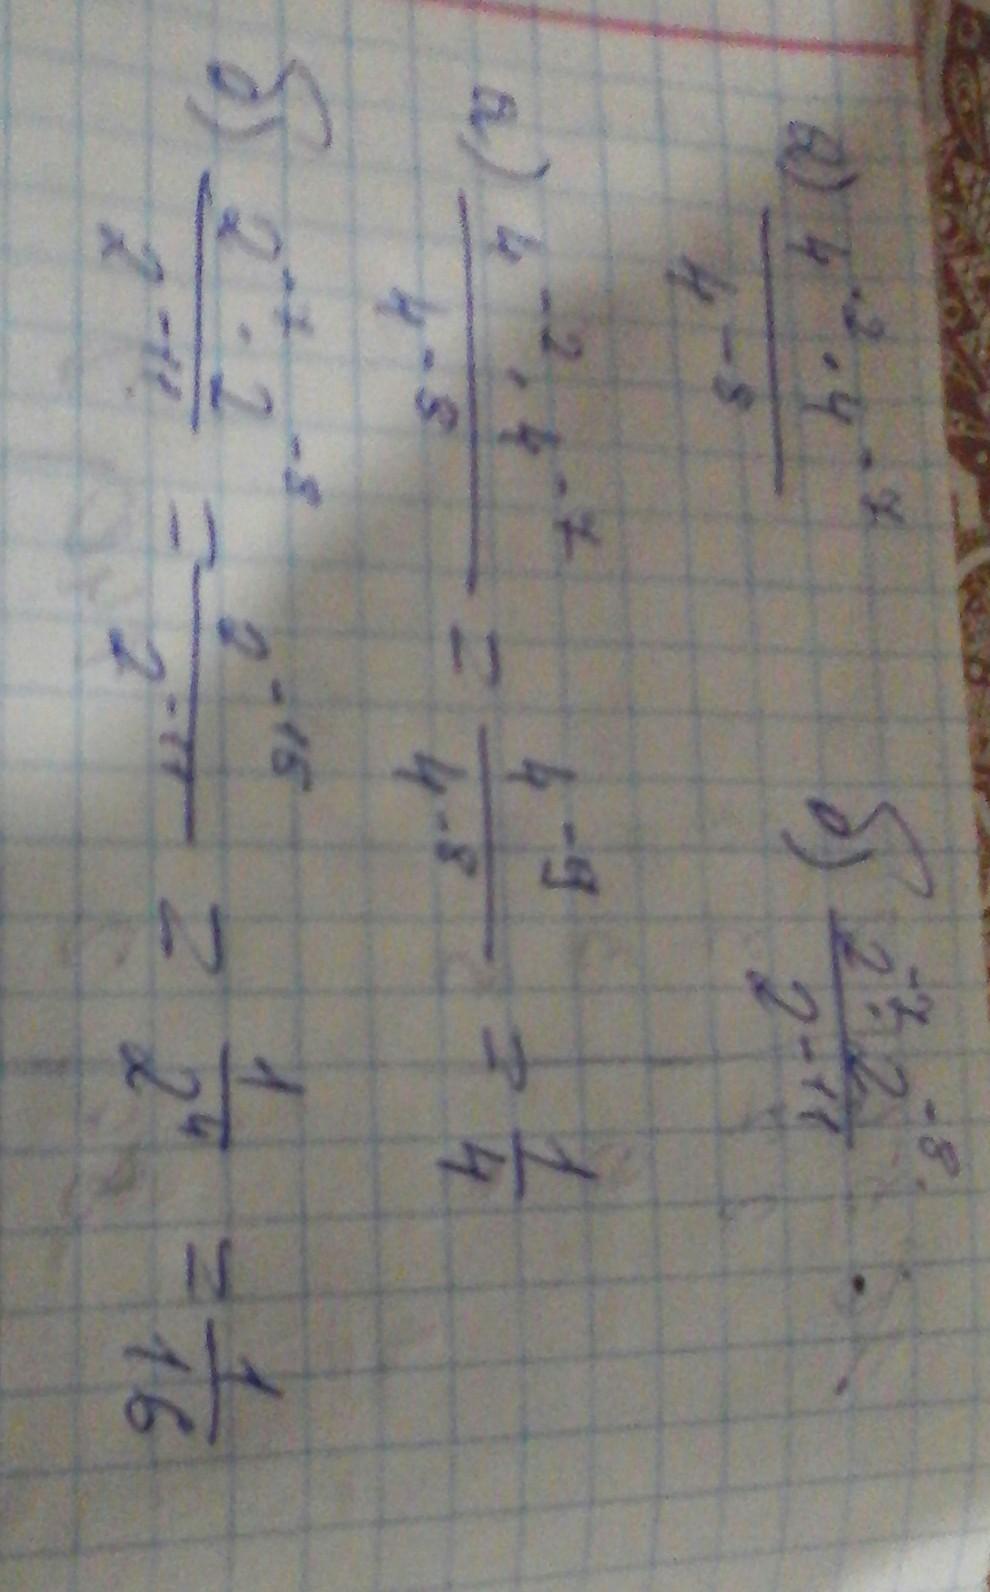 а) 4^-2 · 4^-7 / 4^-8 б) 2^-7 · 2^-8 / 2^-11
а) 4^-2 · 4^-7 / 4^-8 = 4^-9 / 4^-8 = 1/4
б) 2^-7 · 2^-8 / 2^-11 = 2^-15 / 2^-11 = 1/2^4 = 1/16